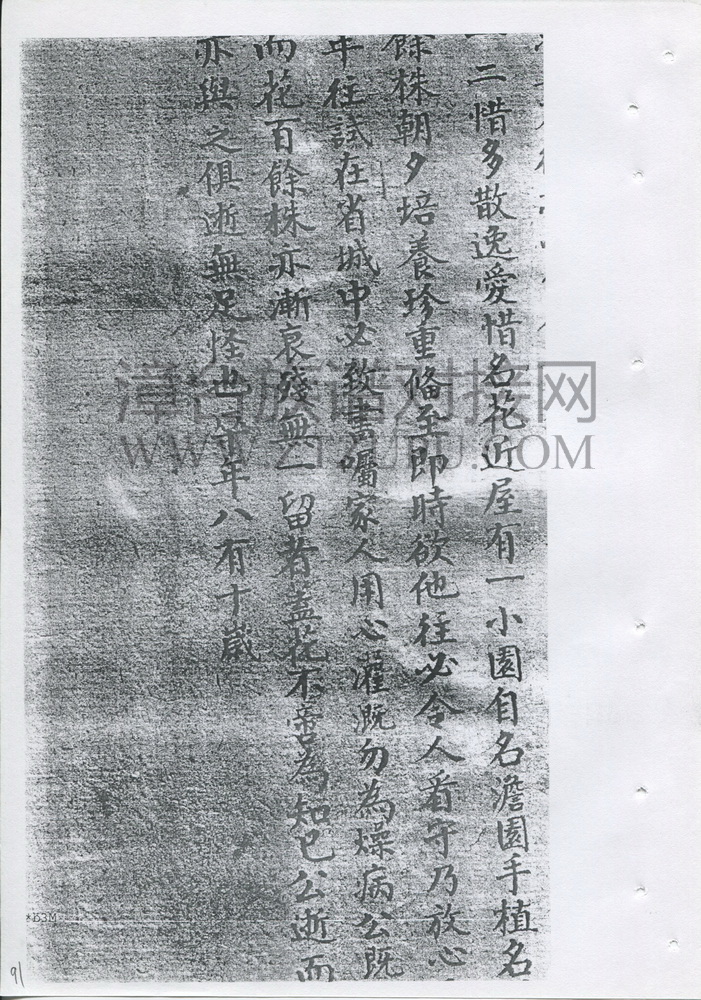 二惜多散逸愛惜名花近屋有一小園自名澹園手植名
餘株朝夕培養珍重俻至即時欲他往必令人看守乃放心
年徃試在省城中必致書囑家人用心灌溉勿為燥病公既
而花百餘株亦漸衰殘無一留者蓋花不啻為知己公逝而
亦與之俱逝無足怪也 年八有十歲
漳台族谱对接网
91